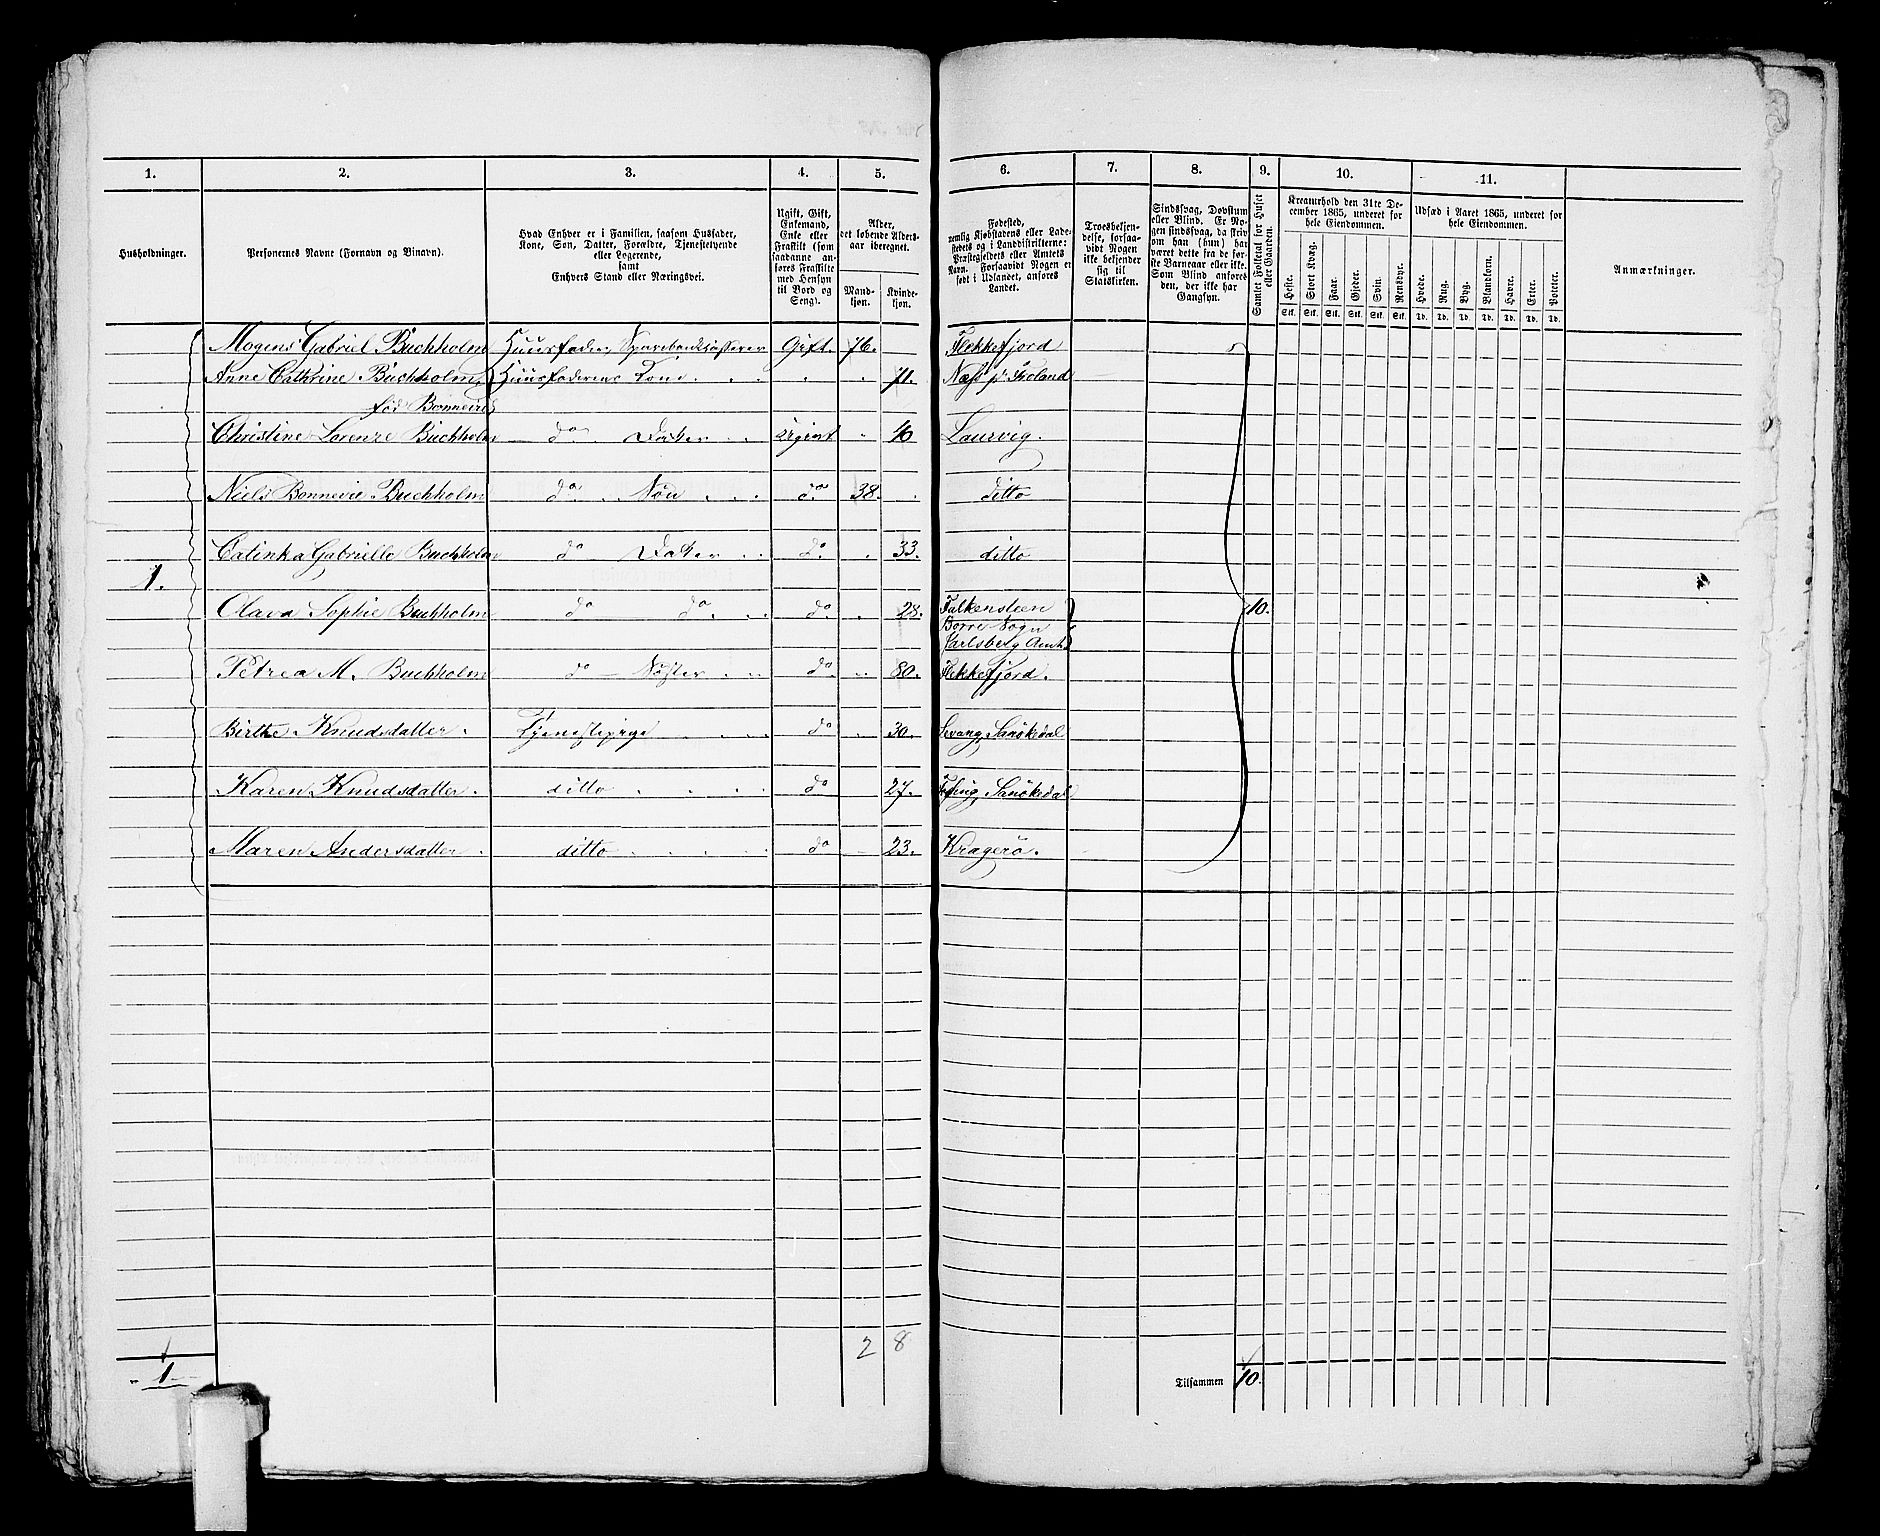 1. 2. 3. 4. 5. 6. 7. 8. 9. 10. 11.
Husholdninger.
Personernes Navne (Fornavn og Binavn).
Hvad Enhver er i Familien, saasom Husfader,
Kone, Søn, Datter, Forældre, Tjenestetyende
eller Logerende,
samt
Enhvers Stand eller Næringsvei.
Ugift, Gift,
Enkemand,
Enke eller
Fraskilt (som
saadanne an-
føres Fraskilte
med Hensyn
til Bord og
Seng).
Alder,
det løbende Alders-
aar iberegnet.
Mand-
kjøn.
Kvinde-
kjøn.
Fødested,
nemlig Kjøbstadens eller Lade-
stedets og i Landdistrikterne:
Præstegjeldets eller Amtets
Navn. Forsaavidt Nogen er
født i Udlandet, anføres
Landet.
Troesbekjen-
delse, forsaa-
vidt Nogen
ikke bekjender
sig til
Statskirken.
Sindssvag, Døvstum
eller Blind. Er No-
gen sindssvag, da skriv
om han (hun) har
været dette fra de før-
ste Barneaar eller ikke.
Som Blind anføres
den, der ikke har
Gangsyn.
Samlet Folketal for Huset
eller Gaarden.
Kreaturhold den 31te De-
cember 1865, underet for
hele Eiendommen.
Heste. Stort Kvæg. Faar. Gjeder. Svin. Rensdyr.
Stk. Stk. Stk. Stk. Stk. Stk.
Udsæd i Aaret 1865, underet for
hele Eiendommen.
Hvede. Rug. Byg. Blandkorn. Havre. Erter. Poteter.
Td. Td. Td. Td. Td. Td. Td.
Anmærkninger.
Mogens Gabriel Buchholm Huusfader, Sparebankkasserer Gift. 76. Flekkefjord
Anne Cathrine Buchholm, Huusfaderens Kone 71. Næss p Holand
fød Bonnevie
Christine Lorenze Buchholm do Datter ugivt 40 Laurvig.
Niels Bonnevie Buchholm do Søn do 38. ditto
Catinka Gabrielle Buchholm do Datter do 33. ditto
1.
Olava Sophie Buchholm do do do 28. Falkensteen 10.
Borre Sogn
Jarlsberg Amt
Petrea M. Buchholm do Søster do 80. Flekkefjord.
Birthe Knudsdatter. Tjenestepige do 30. Levang, Sanökedal
Karen Knudsdatter. ditto do 27. Sanökedal
Maren Andersdatter. ditto do 23. Kragerö.
2 8
1 Tilsammen 10.